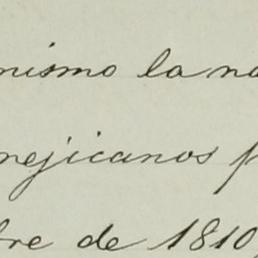 mismo la na
mejicanos p
bre de 1810,